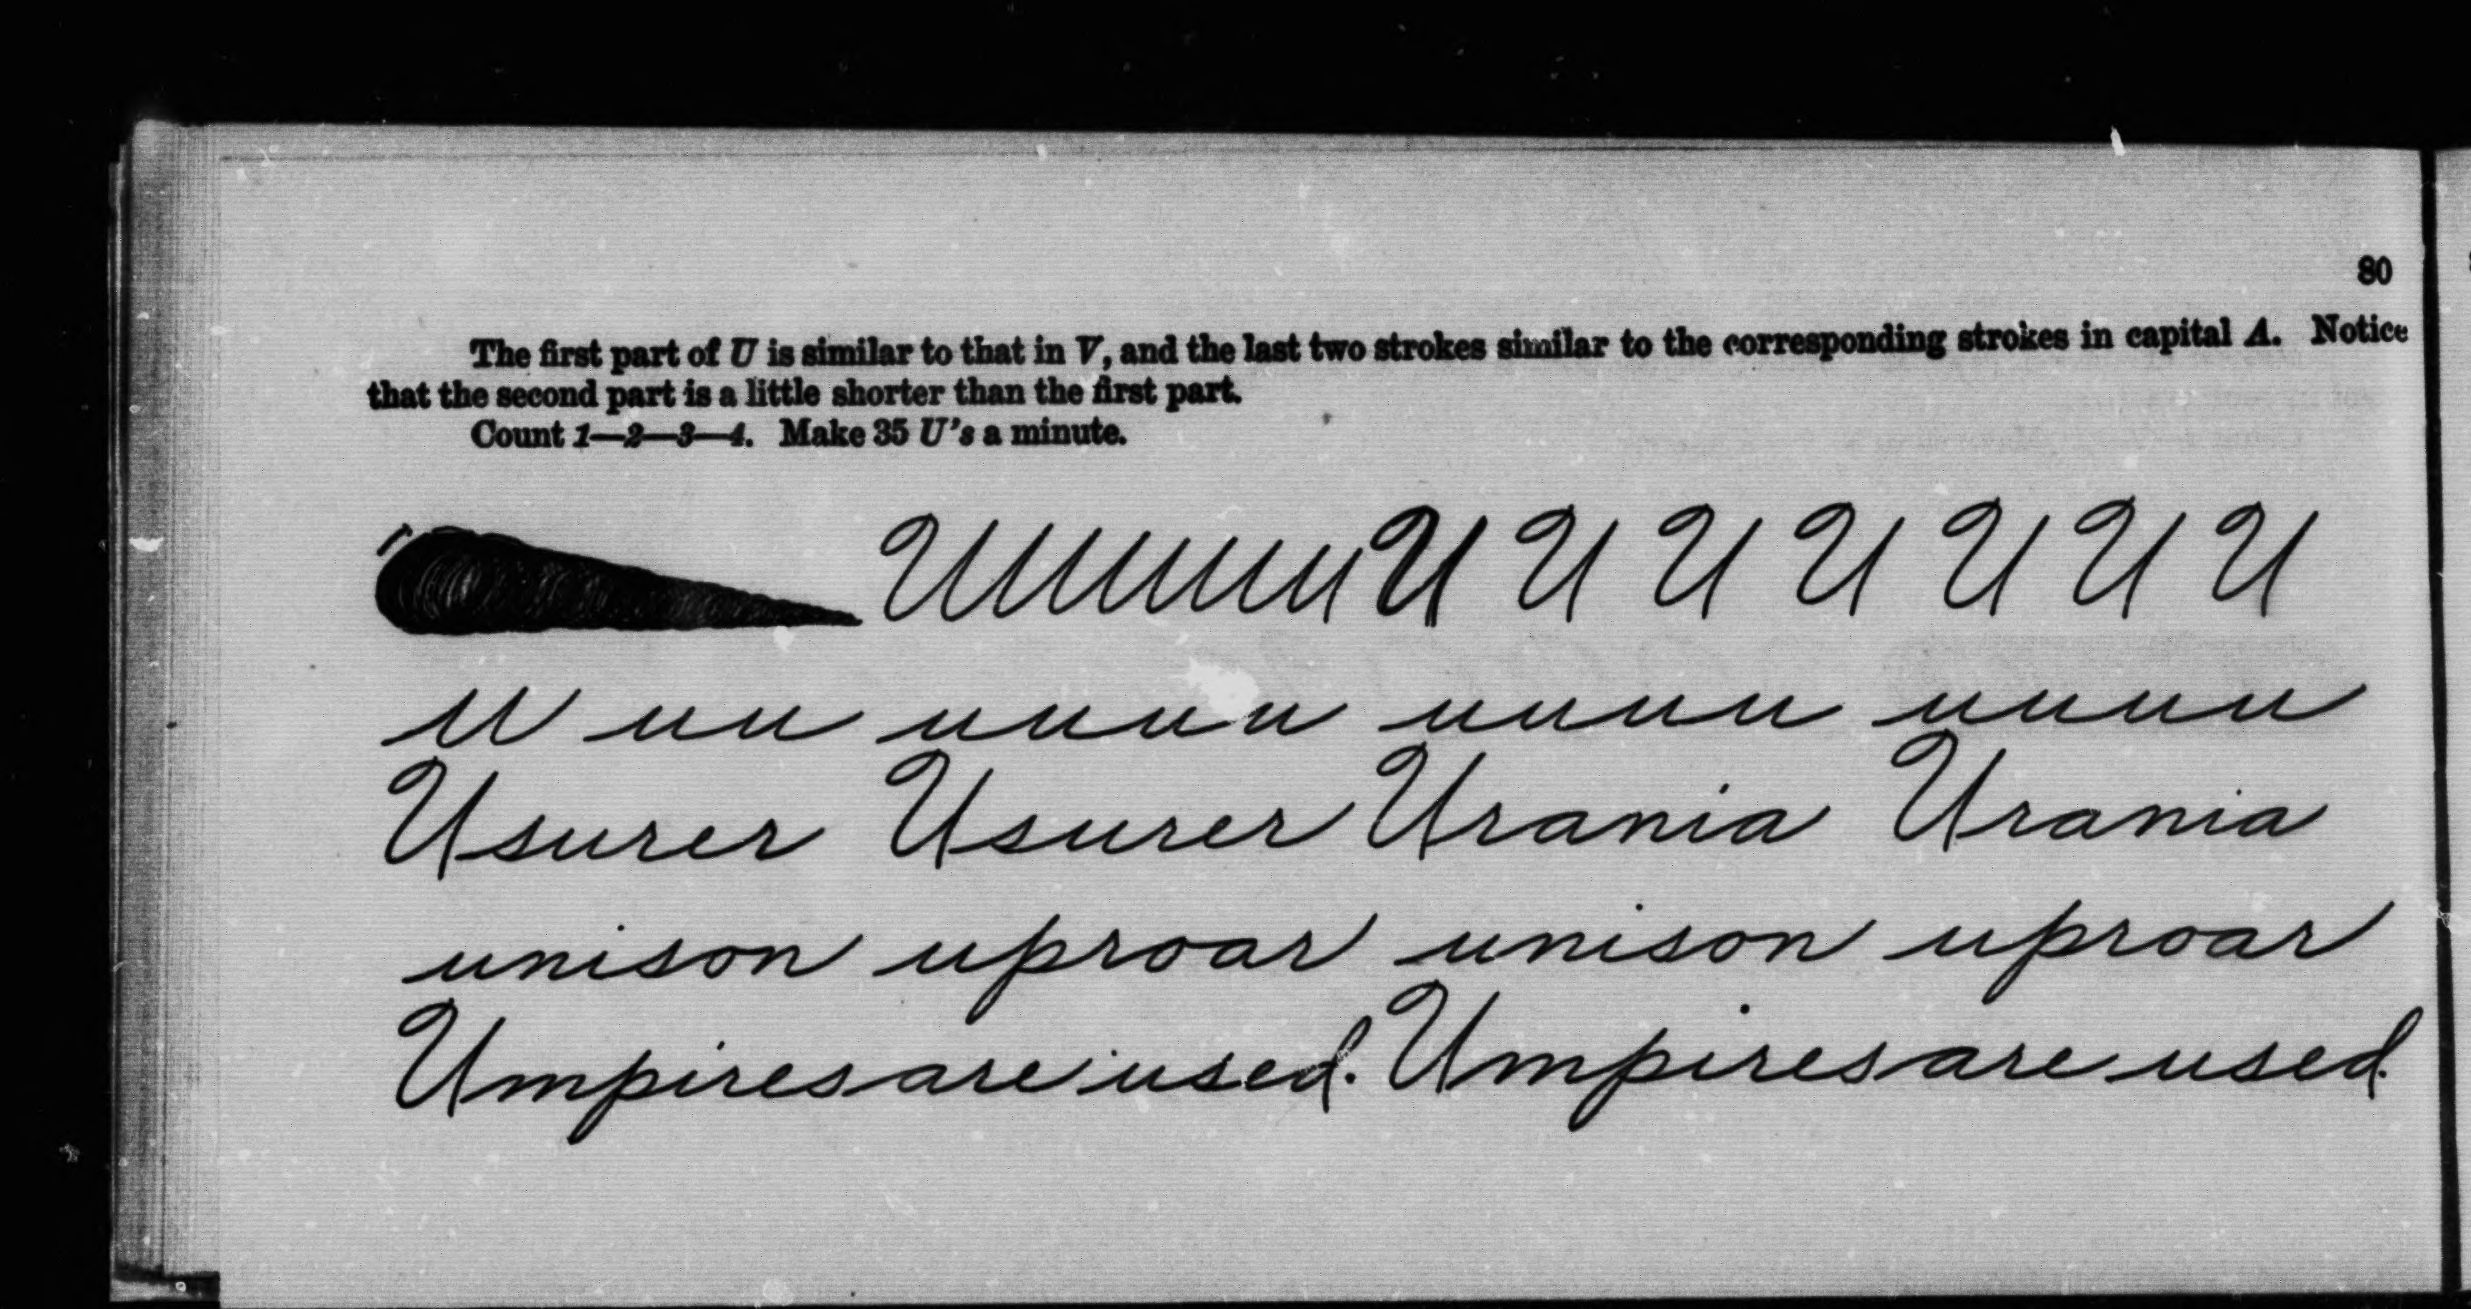 80
The first part of U is similar to that in V, and the last two strokes similar to the corresponding strokes in capital A. Notice
that the second part is a little shorter than the first part.
Count 1—2—3—4. Make 35 U's a minute.
U U U U U U U
u uu uuuu uuuu uuuu
Usurer Usurer Urania Urania
unison uproar unison uproar
Umpires are used. Umpires are used.